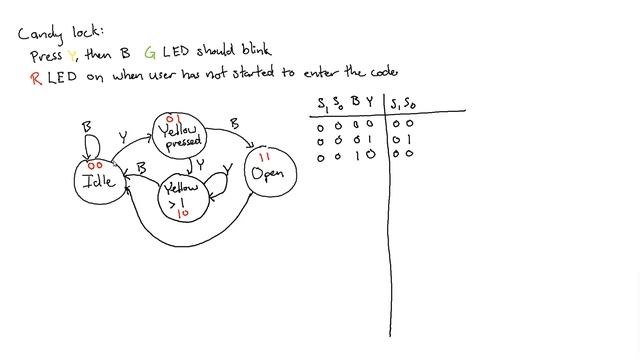 Candy lock:
Press Y, then B G LED should blink
R LED on when user has not started to enter the code
B
Y
01
Yellow
pressed
B
00
Idle
B
Y
Y
Yellow
>1
10
11
Open
S₁ S₀ B Y S₁ S₀
0 0 0 0 0 0
0 0 0 1 0 1
0 0 1 0 0 0